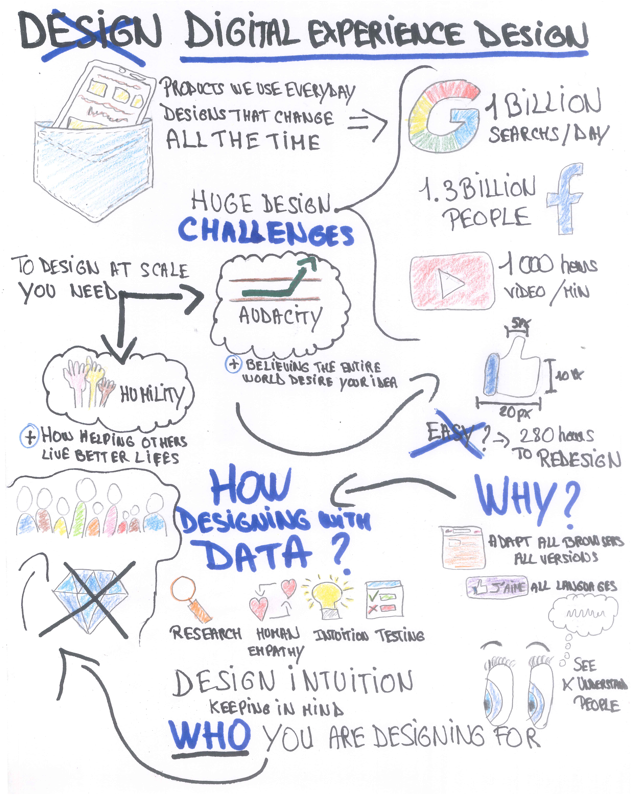 DESIGN DIGITAL EXPERIENCE DESIGN
PRODUCTS WE USE EVERYDAY
DESIGNS THAT CHANGE
ALL THE TIME
G 1 BILLION
SEARCHS/DAY
HUGE DESIGN
CHALLENGES
1.3 BILLION
PEOPLE
f
TO DESIGN AT SCALE
YOU NEED
AUDACITY
+ BELIEVING THE ENTIRE
WORLD DESIRE YOUR IDEA
1000 hours
VIDEO/MIN
5px
10px
20px
HUMILITY
+ HOW HELPING OTHERS
LIVE BETTER LIFES
EASY? → 280 hours
TO REDESIGN
HOW
DESIGNING WITH
DATA?
WHY?
ADAPT ALL BROWSERS
ALL VERSIONS
J'AIME ALL LANGUAGES
RESEARCH HUMAN EMPATHY INTUITION TESTING
SEE
X UNDERSTAND
PEOPLE
DESIGN INTUITION
KEEPING IN MIND
WHO YOU ARE DESIGNING FOR